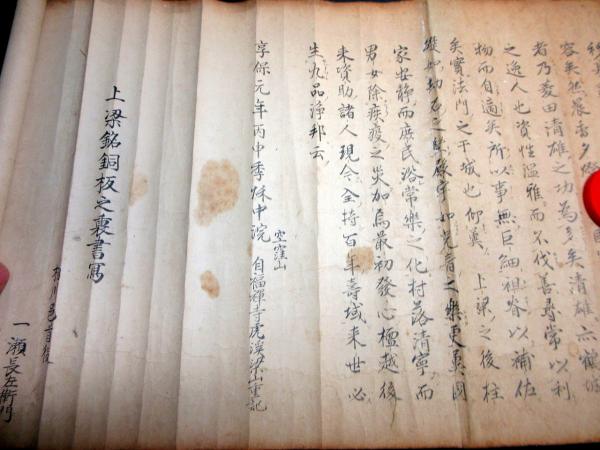 容矣然晨香夕燈
者乃爰田清雄之功為多矣清雄亦
之逸人也資性溫雅而不伐善尋常以利
物而自適矣所以事無巨細祖眷以補佐
矣實法門之干城也仰冀上梁之後柱
家安靜而庶民浴常樂之化村落清寧而
男女除疾疫之災加焉最初發心檀越後
來資助諸人現今全持百年壽域来世必
生九品淨邦云
享保元年丙申季秋中浣
空窪山
自福禪寺虎溪
重記
上梁銘銅板之裏書寫
一瀬長左衛門